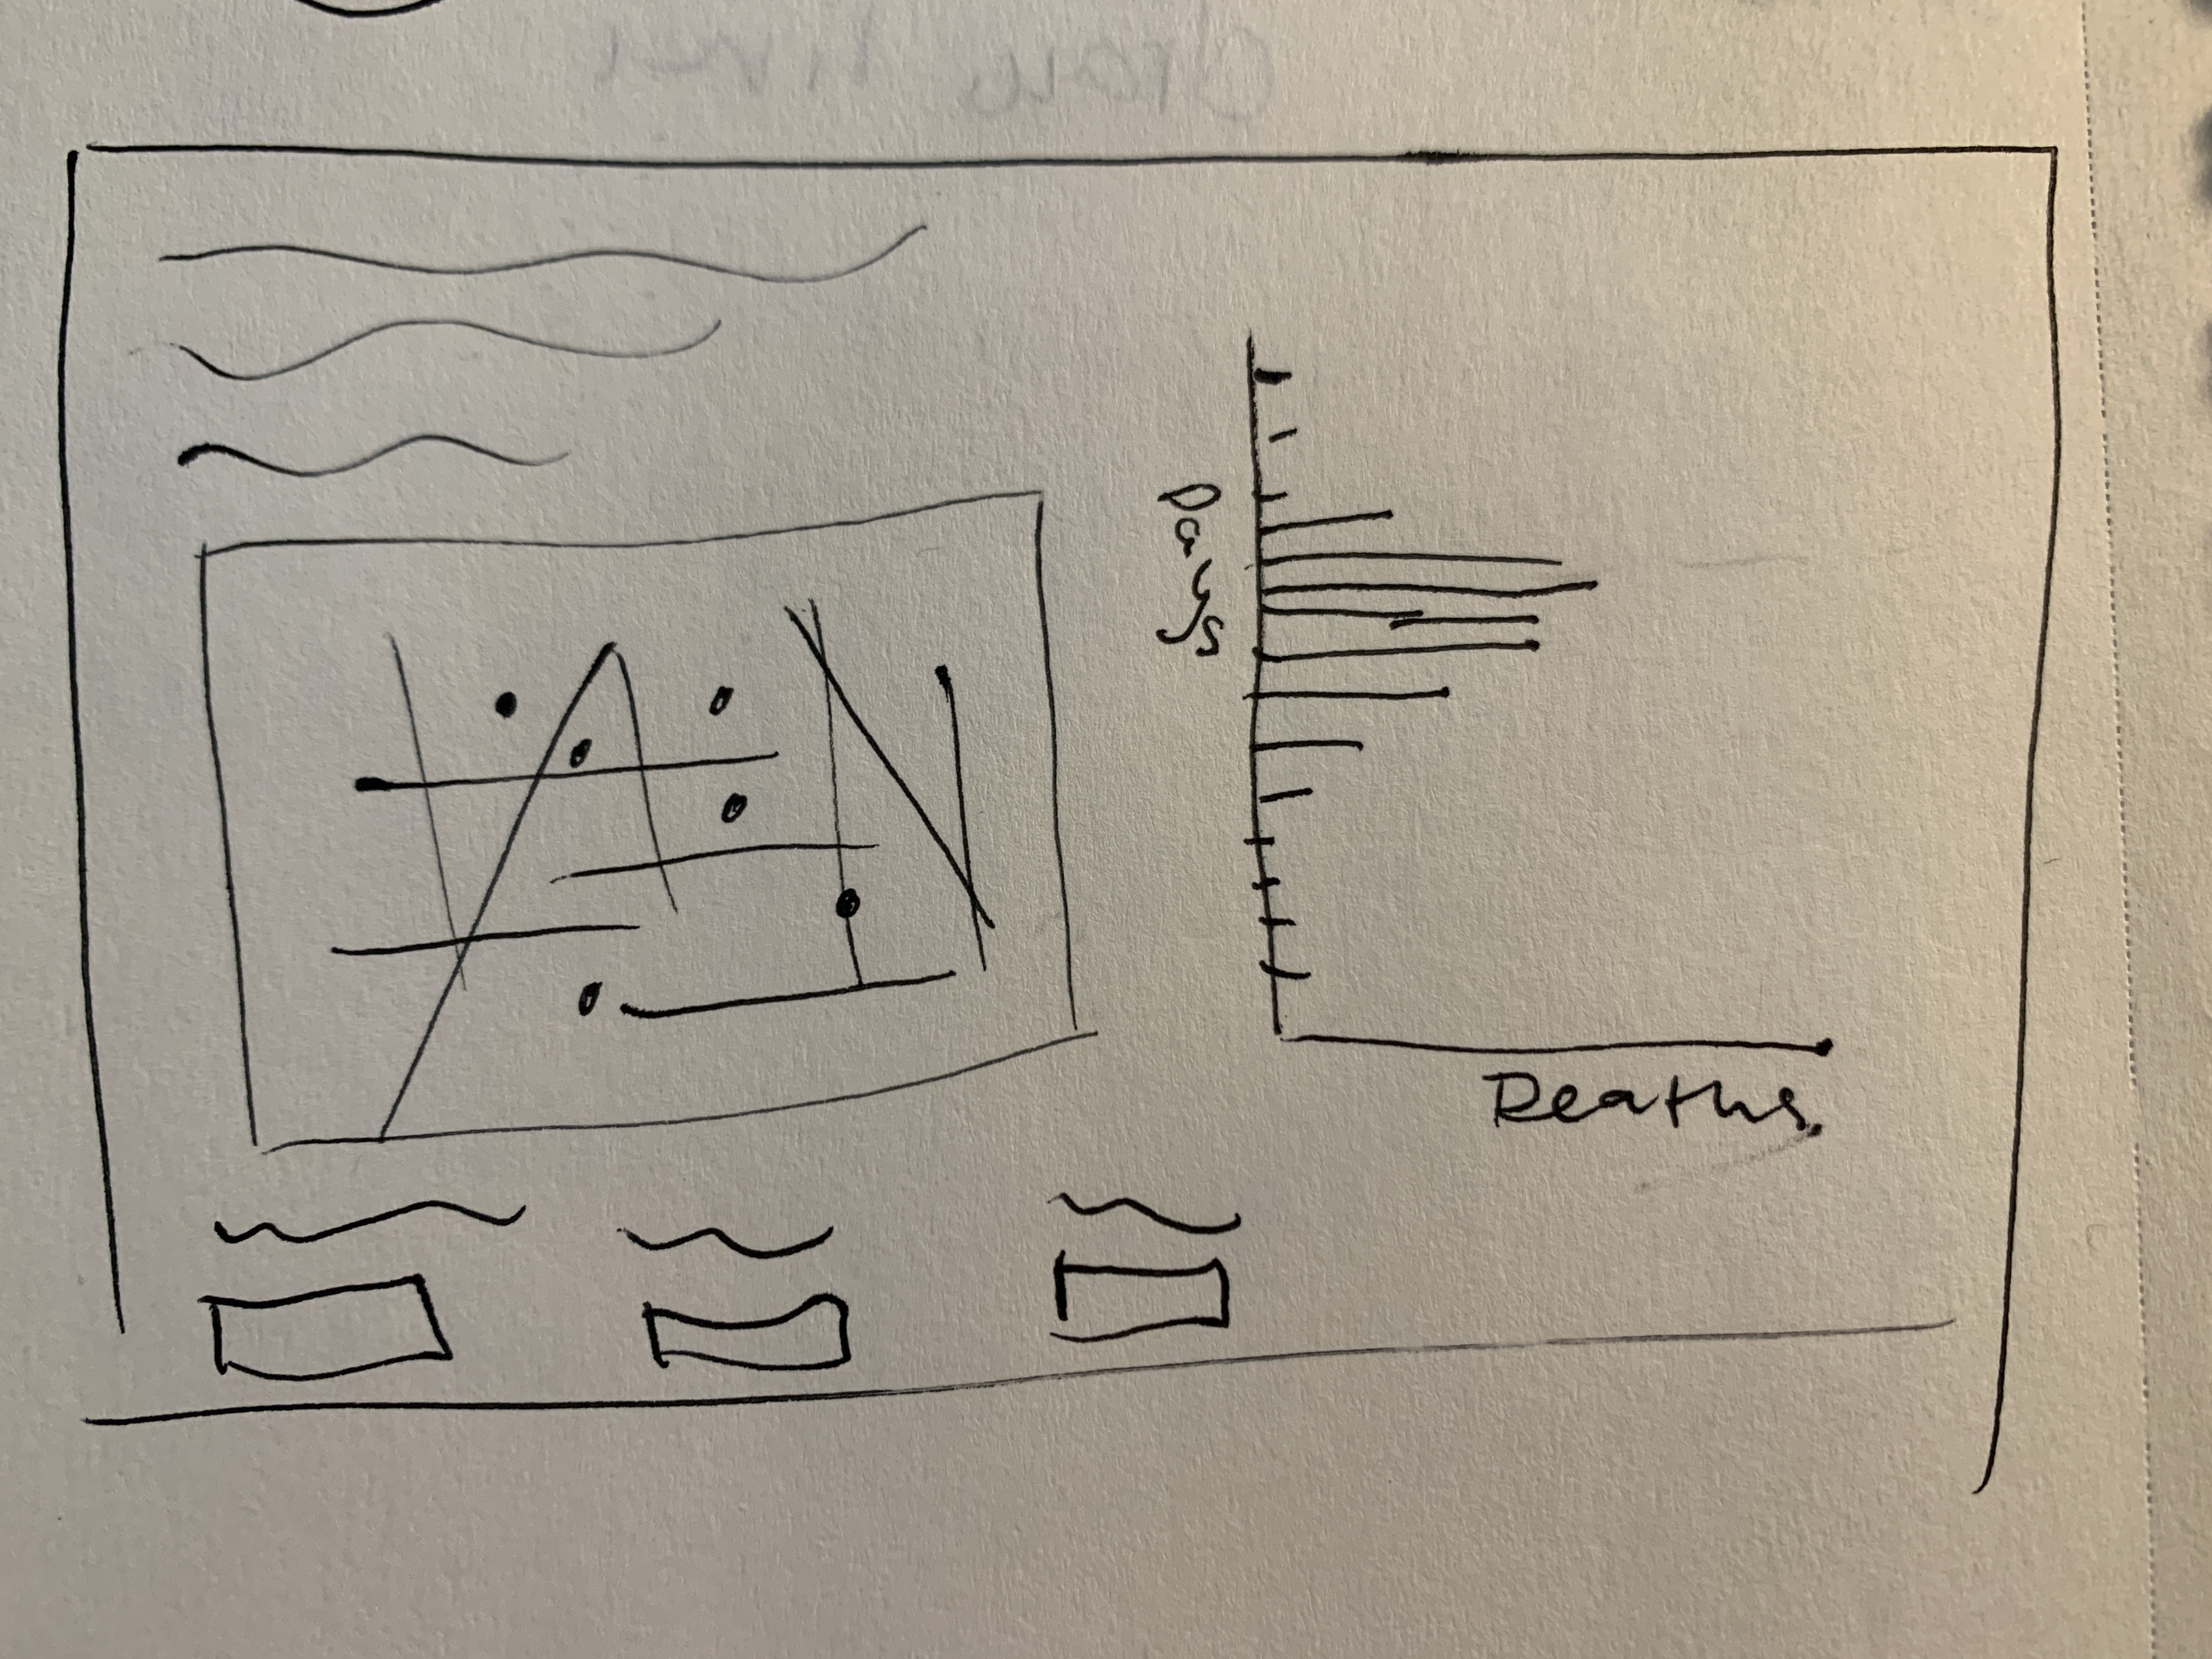 Days
Deaths.